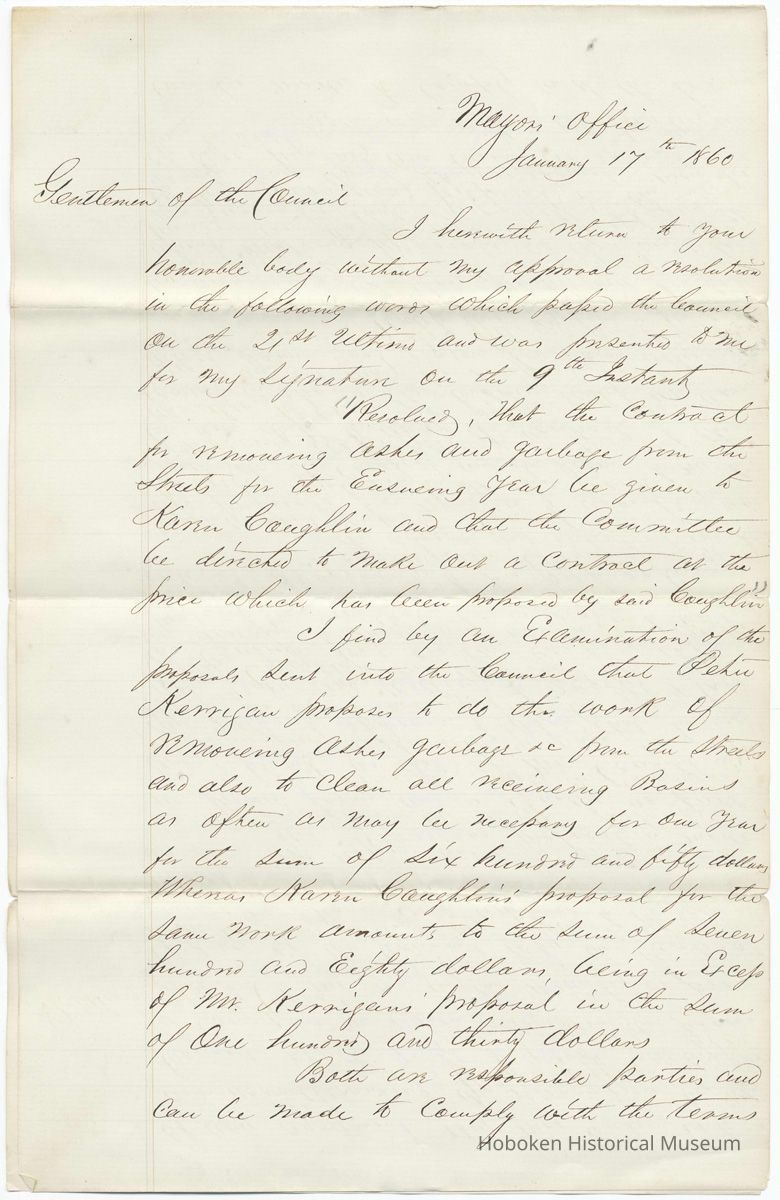 Mayors' Office
January 17th 1860
Gentlemen of the Council
I herewith return to your
honorable body without my approval a resolution
in the following words which passed the Council
on the 21st Ultimo and was presented to me
for my signature on the 9th Instant
"Resolved, that the Contract
for removeing ashes and garbage from the
Streets for the Ensueing Year be given to
Karen Coughlin and that the Committee
be directed to make out a Contract at the
price which has been proposed by said Coughlin"
I find by an Examination of the
proposals sent into the Council that Peter
Kerrigan proposes to do the work of
removeing ashes garbage &c from the streets
and also to clean all receiveing Basins
as often as may be necessary for one Year
for the sum of six hundred and fifty dollars
Whereas Karen Coughlins' proposal for the
same work amounts to the sum of seven
hundred and Eighty dollars, being in Excess
of Mr. Kerrigans' proposal in the sum
of One hundred and thirty dollars
Both are responsible parties and
can be made to comply with the terms
Hoboken Historical Museum